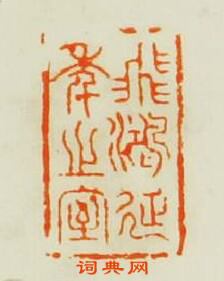 飛鴻延
年之室
词典网